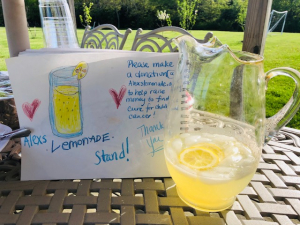 Please make
a donation @
Alexslemonade.org
to help raise
money to find
Cure for child
cancer!
Thank
You
Alex's
Lemonade
Stand!